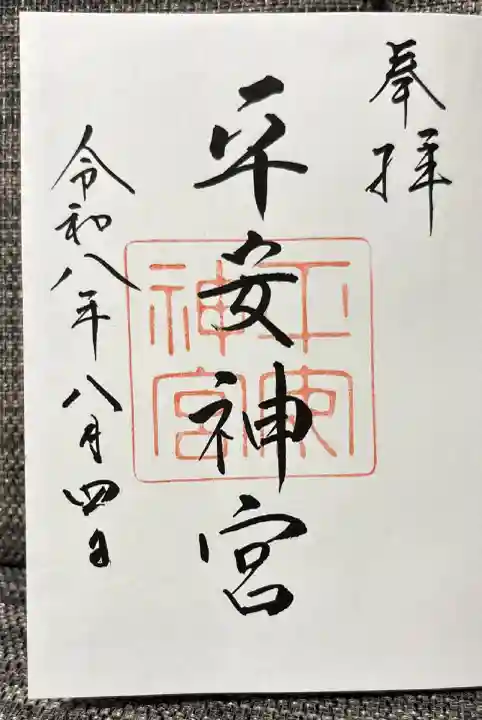 奉拝
平安神宮
平安
神宮
令和八年八月四日